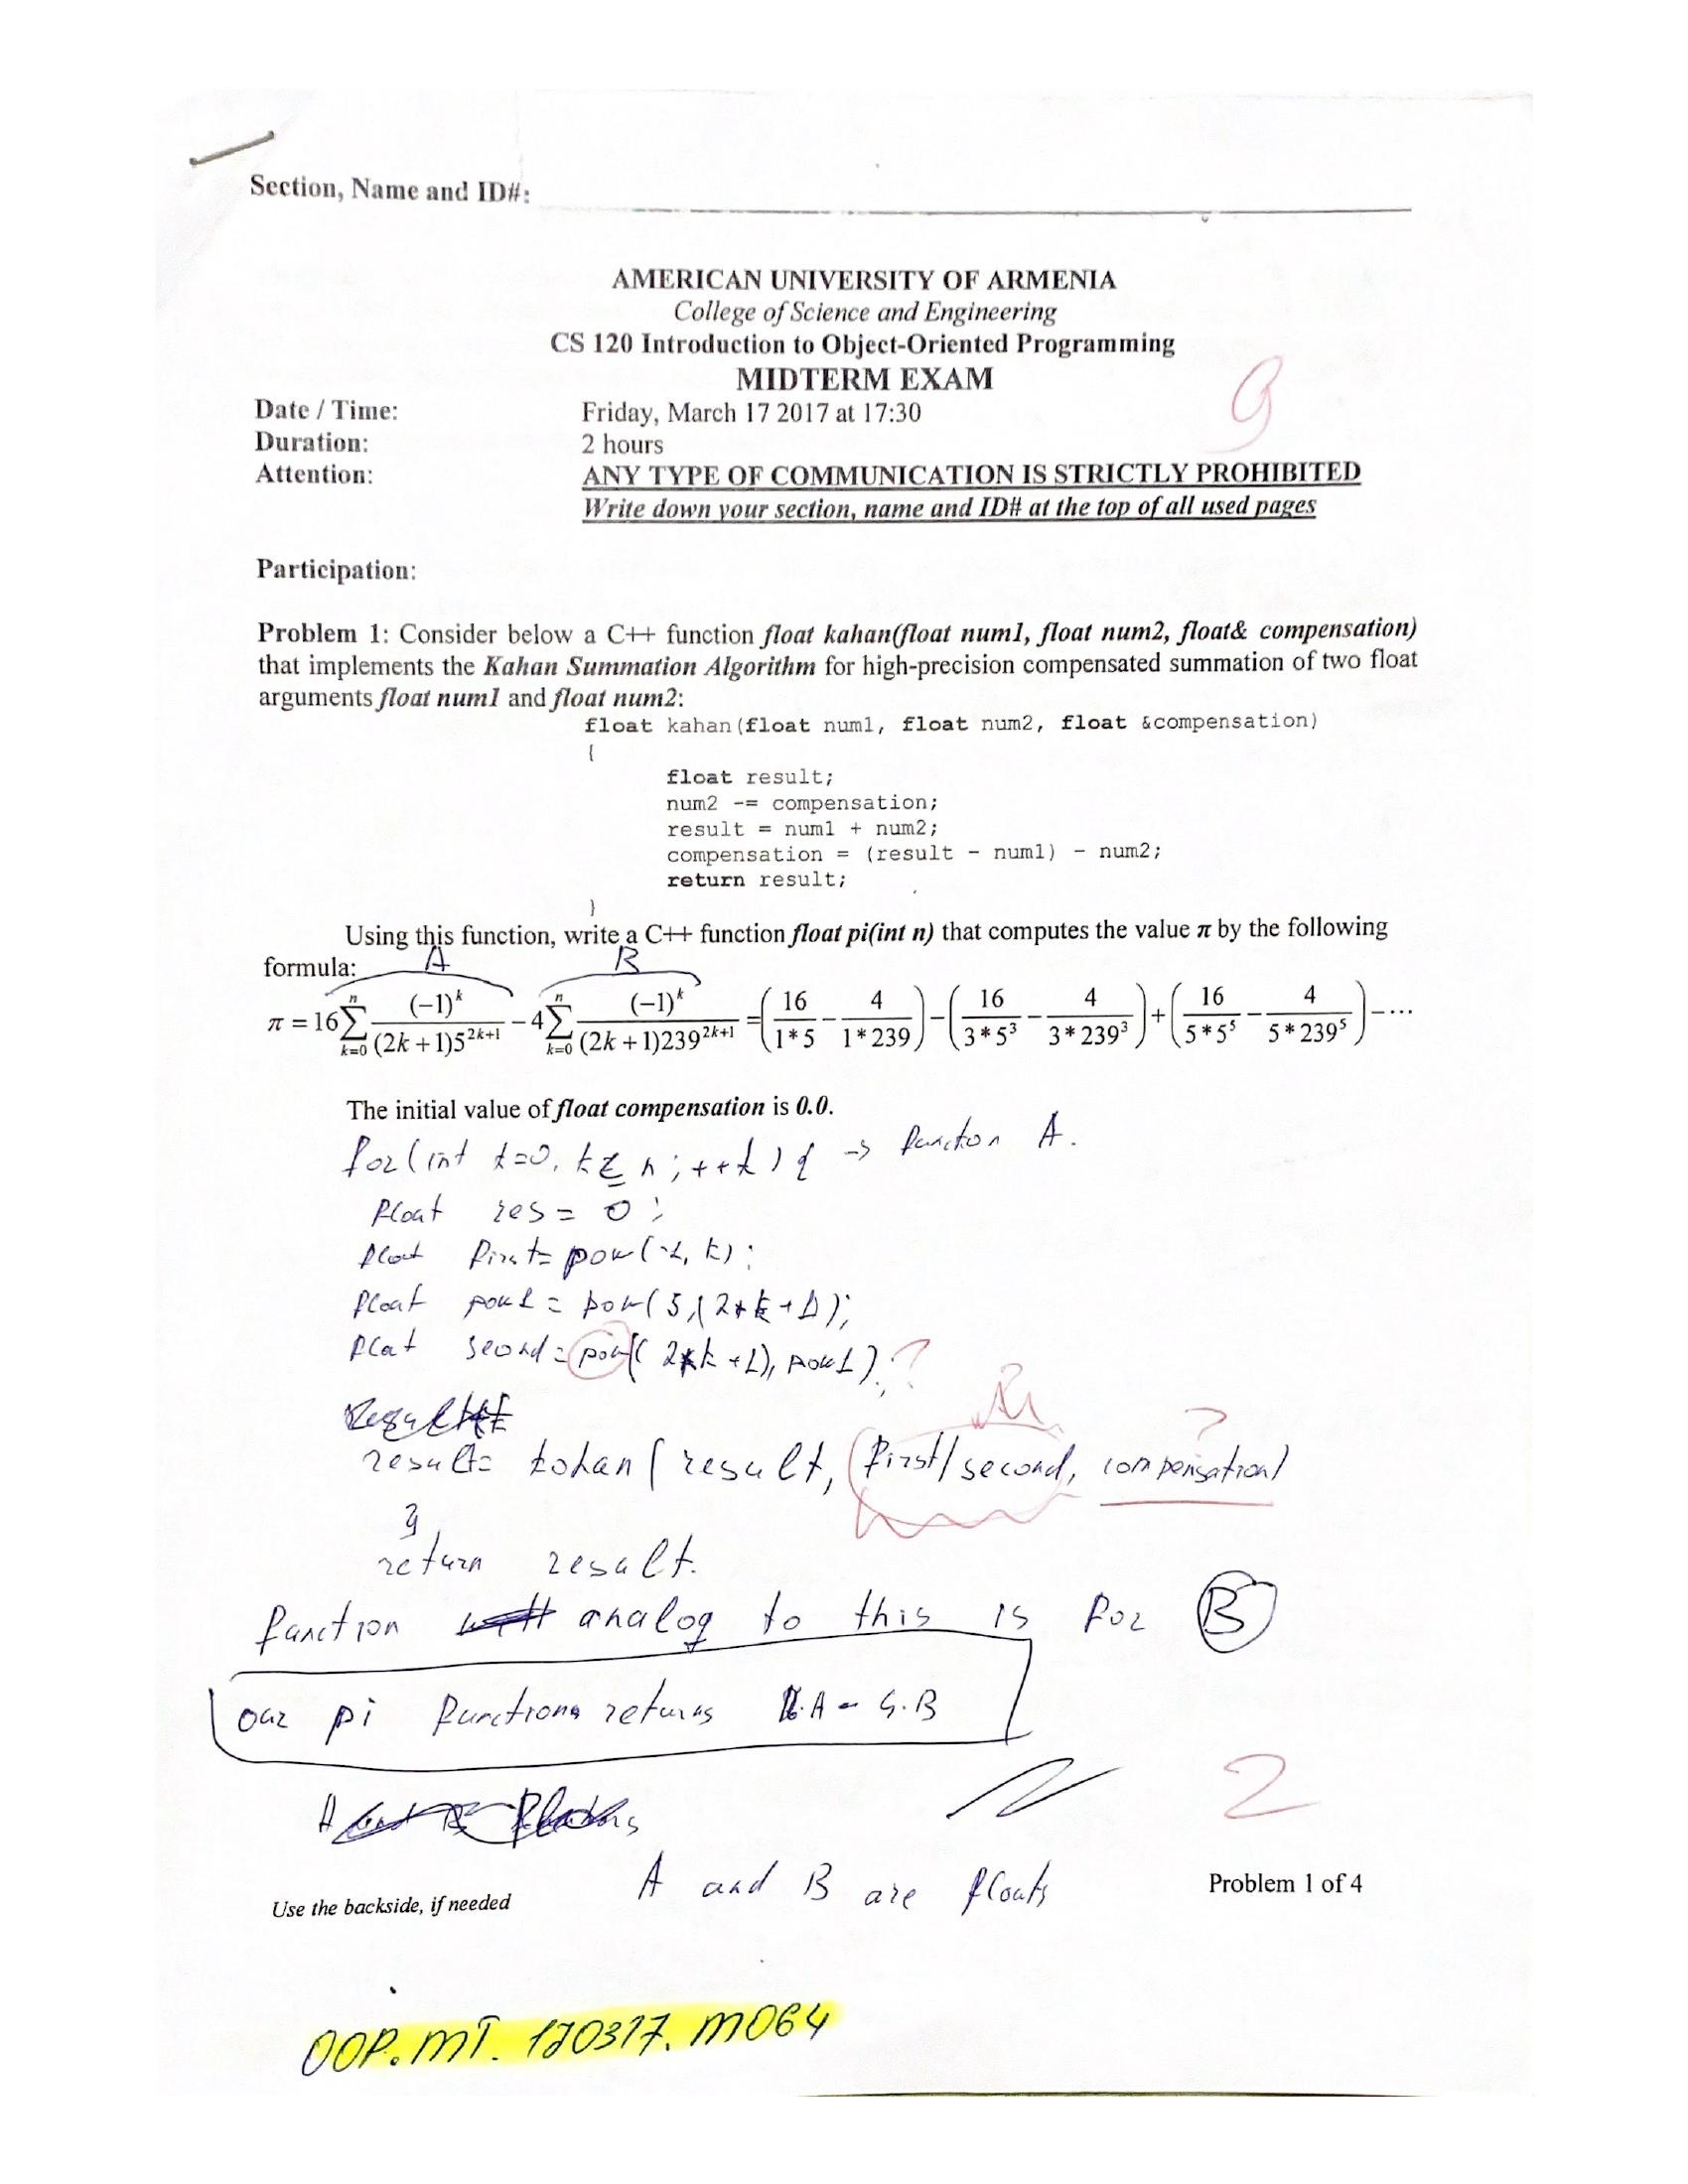 Section, Name and ID#:
AMERICAN UNIVERSITY OF ARMENIA
College of Science and Engineering
CS 120 Introduction to Object-Oriented Programming
MIDTERM EXAM
9
Date / Time: Friday, March 17 2017 at 17:30
Duration: 2 hours
Attention: ANY TYPE OF COMMUNICATION IS STRICTLY PROHIBITED
Write down your section, name and ID# at the top of all used pages
Participation:
Problem 1: Consider below a C++ function float kahan(float num1, float num2, float& compensation)
that implements the Kahan Summation Algorithm for high-precision compensated summation of two float
arguments float num1 and float num2:
float kahan(float num1, float num2, float &compensation)
{
float result;
num2 -= compensation;
result = num1 + num2;
compensation = (result - num1) - num2;
return result;
}
Using this function, write a C++ function float pi(int n) that computes the value π by the following
A B
formula:
π = 16 ∑_{k=0}^{n} (-1)^k / ((2k+1)5^{2k+1}) - 4 ∑_{k=0}^{n} (-1)^k / ((2k+1)239^{2k+1}) = (16/(1*5) - 4/(1*239)) - (16/(3*5^3) - 4/(3*239^3)) + (16/(5*5^5) - 4/(5*239^5)) - ···
The initial value of float compensation is 0.0.
for(int k=0, k≤ n; ++k) { -> function A.
float res = 0;
float first= pow(-1, k);
float pow1 = pow(5,(2*k+1);
float second = pow(( 2*k +1), pow1); ?
result= kohan( result, (first/second, compensation) ?
}
return result.
function analog to this is for B
our pi functions returns 16·A - 4·B
2
A and B are floats
Use the backside, if needed
Problem 1 of 4
OOP. MT. 170317. M064